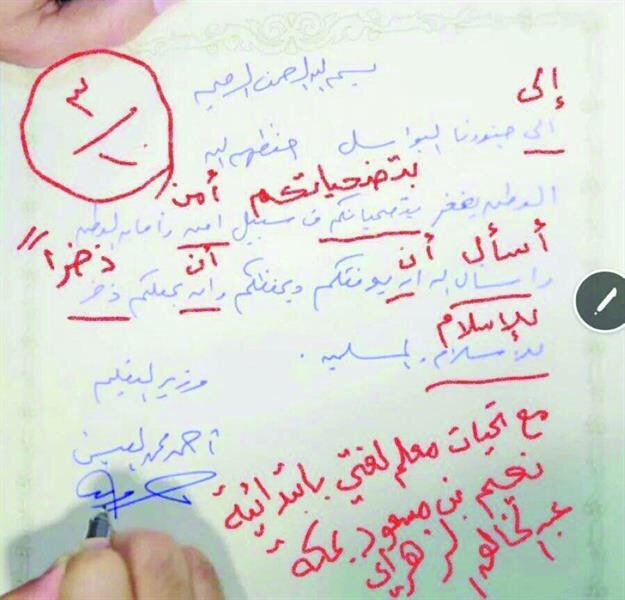 بسم الله الرحمن الرحيم
٣/١٠
إلى
الى جنودنا البواسل حفظهم الله
بتضحياتكم أمن
الوطن يفخر بتضحياتكم في سبيل امن وامان الوطن
أسأل أن أن ذخرا"
واسال الله ان يوفقكم ويحفظكم وان يجعلكم ذخر
للإسلام
للإسلام والمسلمين.
وزير التعليم
أحمد محمد العيسى
مع تحيات معلم لغتي بابتدائية
نعيم بن مسعود بمكة
عبدالخالق الزهراني